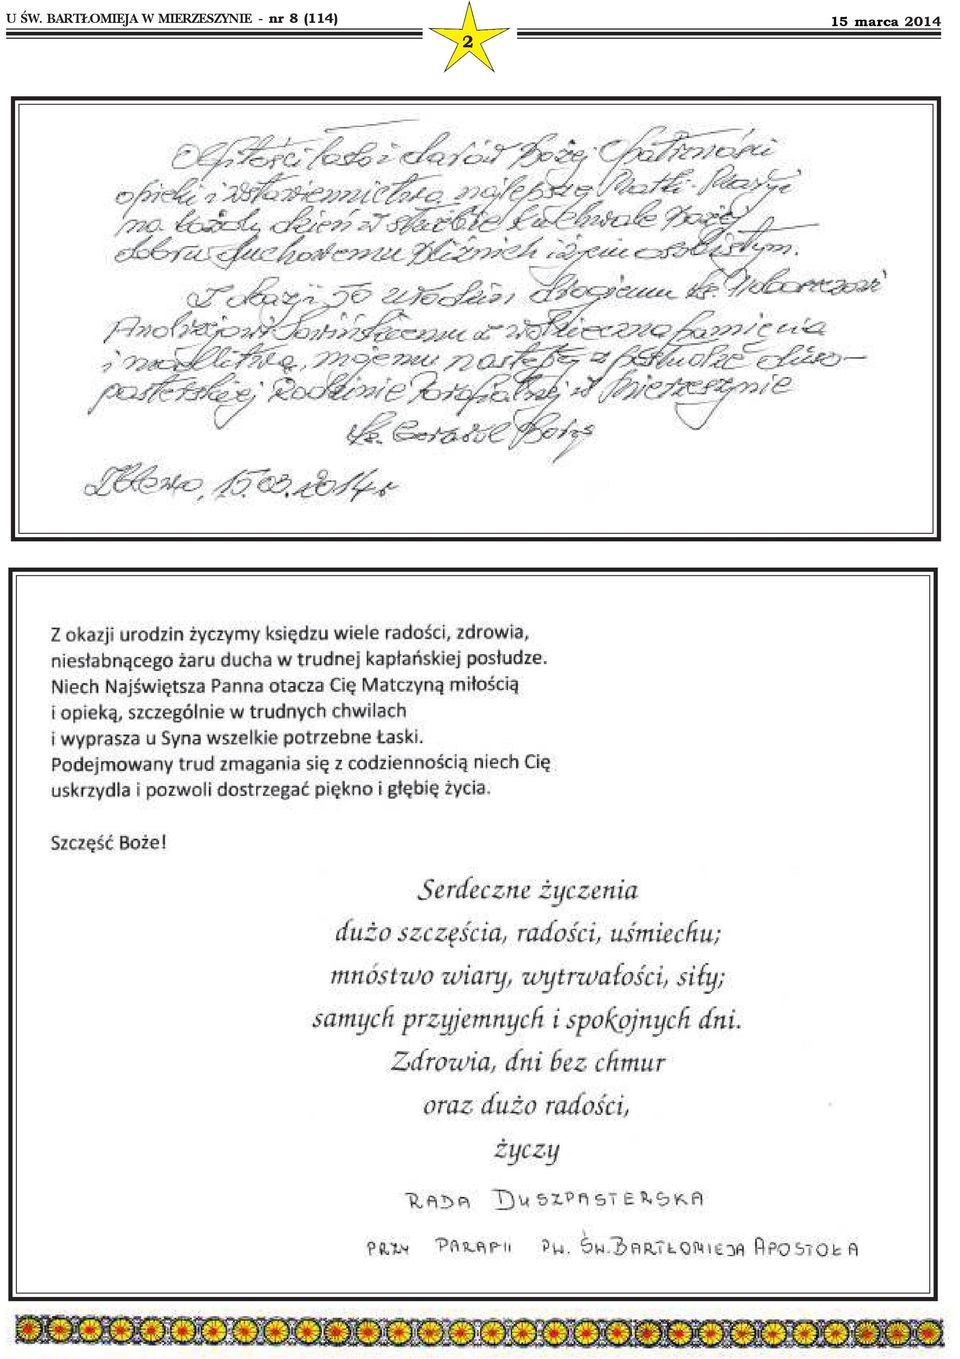 U ŚW. BARTŁOMIEJA W MIERZESZYNIE - nr 8 (114)
2
15 marca 2014
Obfitości łask i darów Bożej Opatrzności
opieki i wstawiennictwa najlepszej Matki Maryi
na każdy dzień w służbie ku chwale Bożej
dobru duchowemu bliźnich i życiu osobistym.
Z okazji 50 urodzin, drogiemu ks.
Andrzejowi w pamięcią
i modlitwą, mojemu następcy w posłudze duszo-
pasterskiej Rodzinie Parafialnej w Mierzeszynie
ks. Gerard Borys
Zblewo, 15.03.2014 r
Z okazji urodzin życzymy księdzu wiele radości, zdrowia,
niesłabnącego żaru ducha w trudnej kapłańskiej posłudze.
Niech Najświętsza Panna otacza Cię Matczyną miłością
i opieką, szczególnie w trudnych chwilach
i wyprasza u Syna wszelkie potrzebne Łaski.
Podejmowany trud zmagania się z codziennością niech Cię
uskrzydla i pozwoli dostrzegać piękno i głębię życia.
Szczęść Boże!
Serdeczne życzenia
dużo szczęścia, radości, uśmiechu;
mnóstwo wiary, wytrwałości, siły;
samych przyjemnych i spokojnych dni.
Zdrowia, dni bez chmur
oraz dużo radości,
życzy
RADA DUSZPASTERSKA
PRZY PARAFII PW. ŚW. BARTŁOMIEJA APOSTOŁA